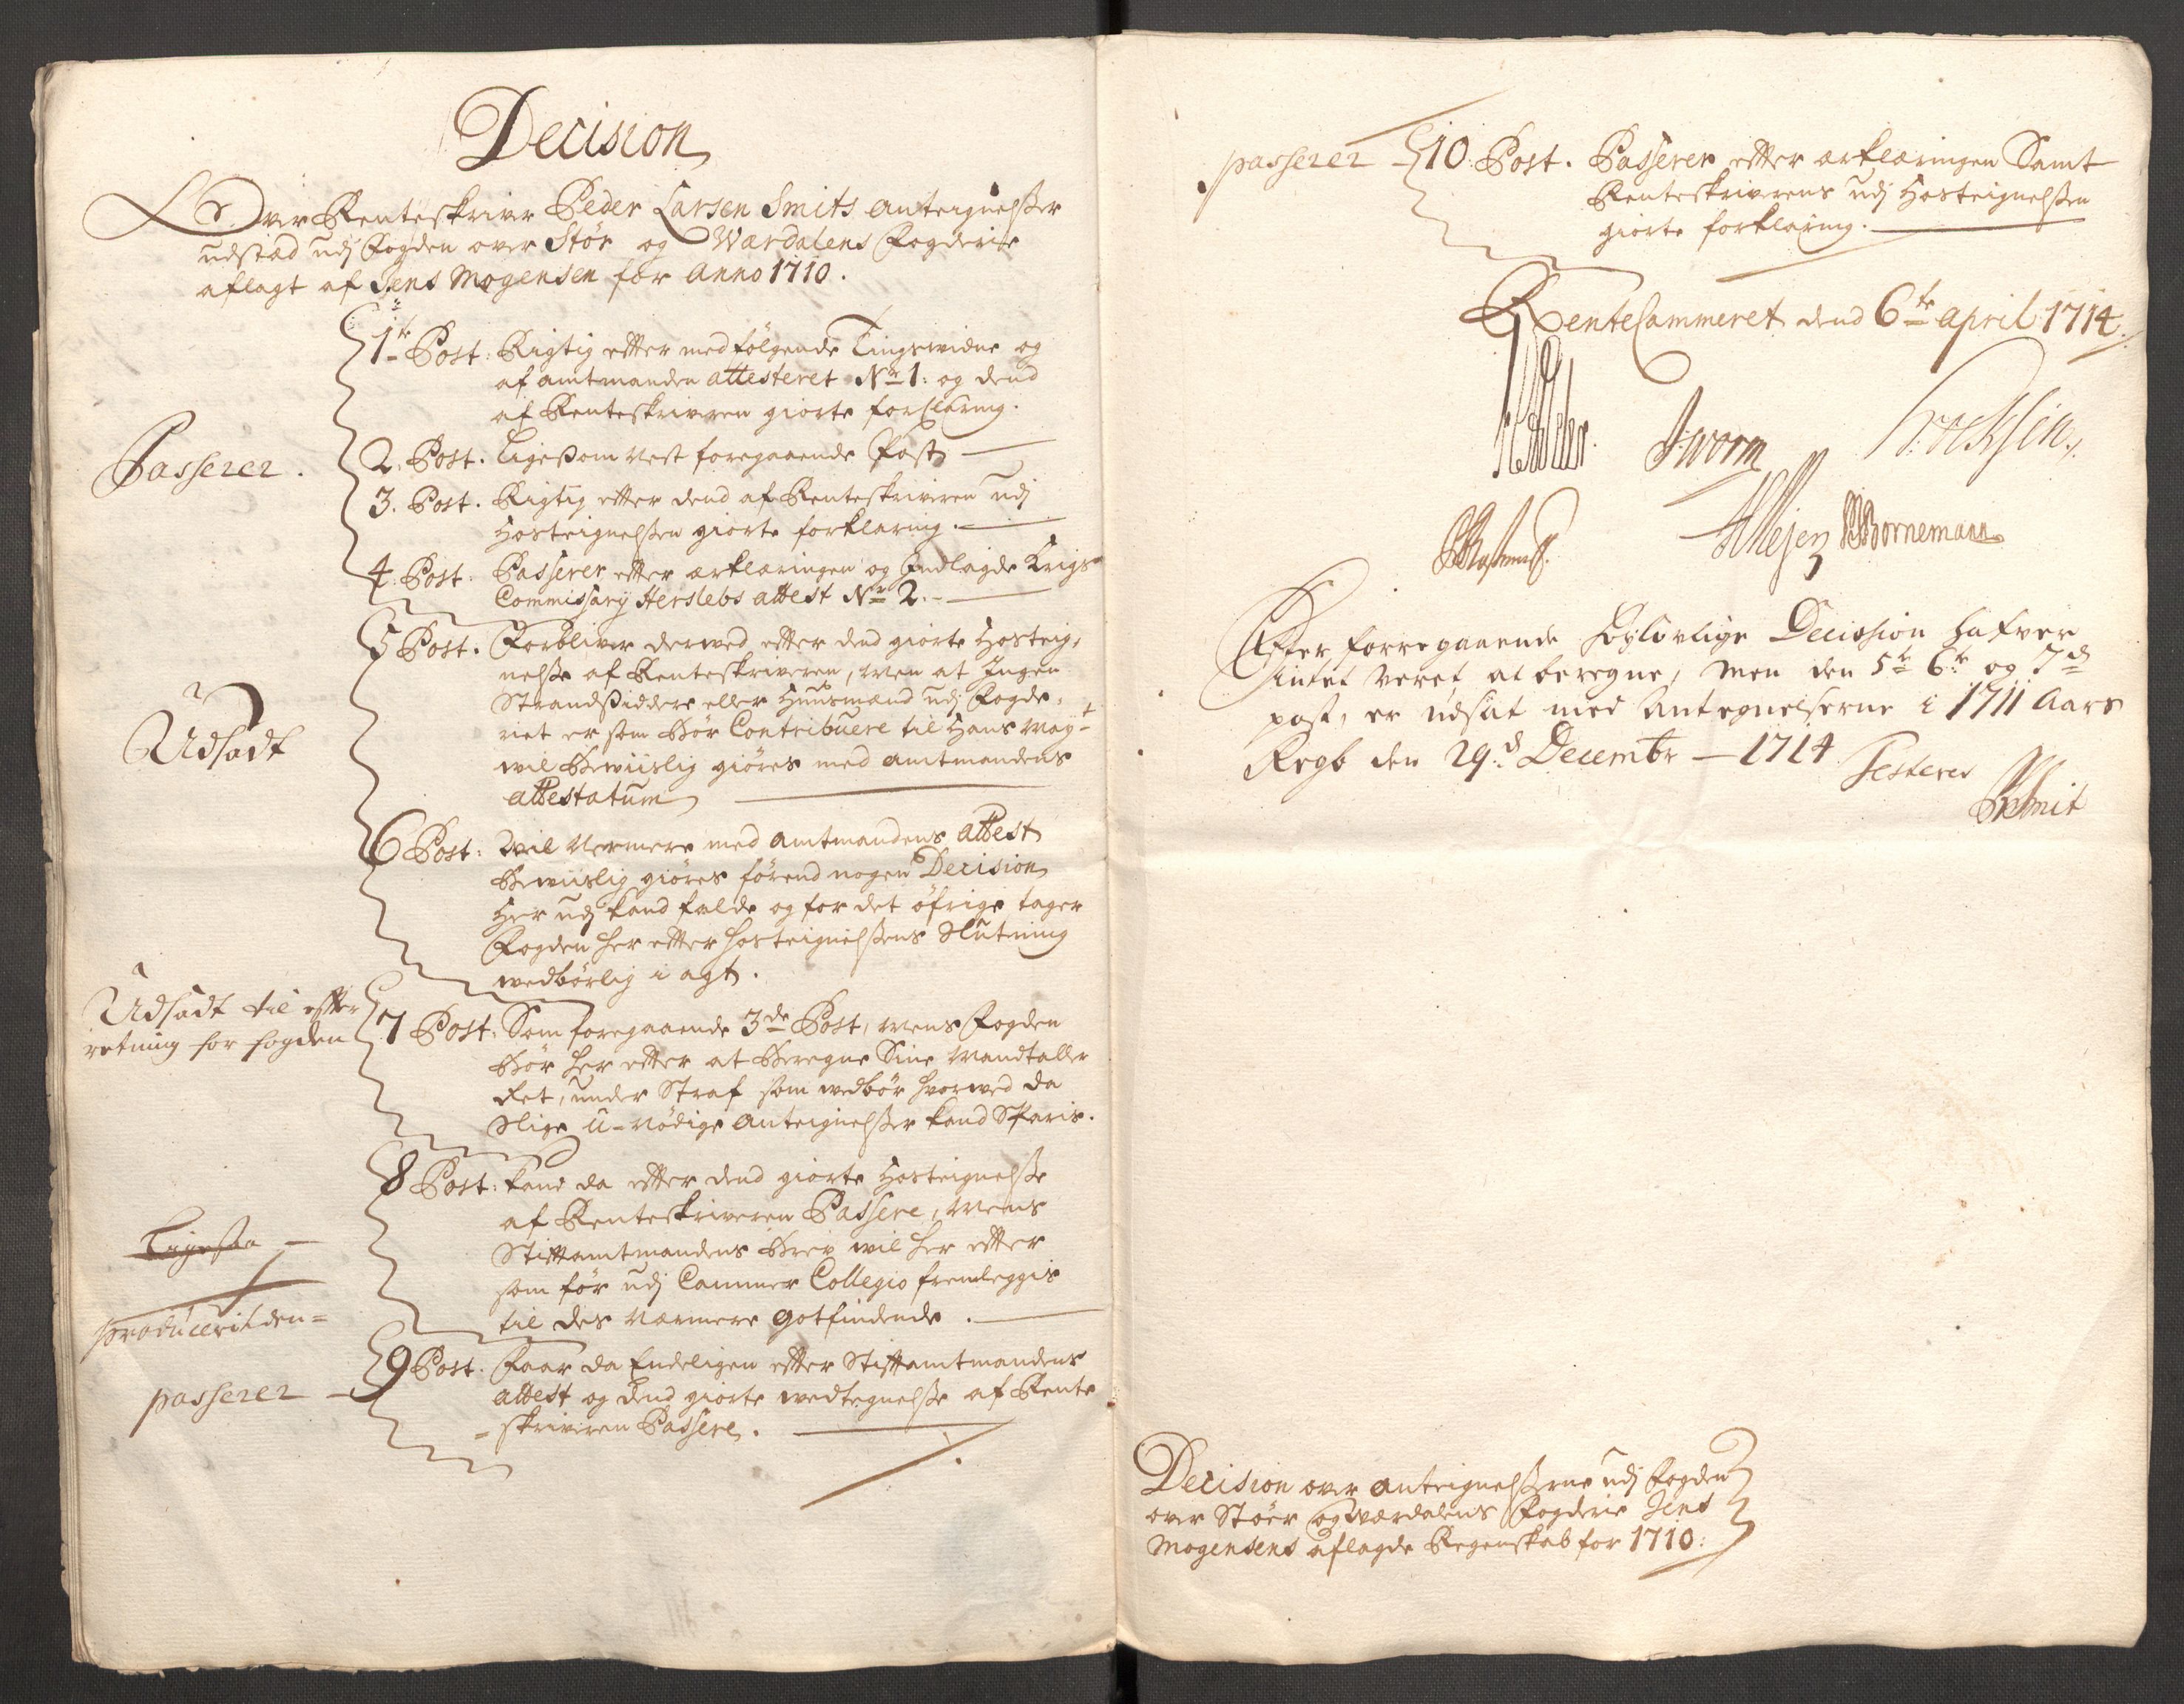 Decision
Over Renteskriver Peder Larsen Smits anteignelsser
udstæd udj Fogden over Stør og Wærdalens Fogderie
aflagt af Jens Mogensen for Anno 1710.
1te Post: Rigtig efter medfølgende Tingswidne og
af amtmanden attesteret No 1: og dend
af Renteskriveren giorte forclaring.
Passerer.
2. Post. Ligesom nest foregaaende Post
3. Post. Rigtig efter dend af Renteskriveren udj
Hosteignelssen giorte forklaring.
4. Post. Passerer efter erklæringen og Indlagde Krigs
Commissarij Herslebs attest No 2.
5 Post. Forbliver derved efter dend giorte Hosteig-
nelsse af Renteskriveren, men at Ingen
Strandsiddere eller Huusmænd udj Fogde-
riet er som bør Contribuere til Hans Mayt
wil bewiislig giøres med amtmandens
attestatum
Udsadt
6 Post: Wil nermere med amtmandens attest
bewiislig giøres førend nogen Decision
Her udj kand falde og for det øfrige tager
Fogden her efter hosteignelssens Slutning
wedbørlig i agt.
Udsadt til effter
retning for fogden
7 Post: Som foregaaende 3de Post, mens Fogden
bør her efter at beregne Sine Mandtaller
Ret, under Straf som wedbør hvorwed da
Slige u-nødige anteignelsser kand Sparis.
8 Post: kand da efter dend giorte Hosteignelsse
af Renteskriveren Passere, mens
Stiftamtmandens brev wil her efter
som før udj Cammer Collegio fremleggis
til des nærmere gotfindende.
Ligesaa
producerit den
9 Post. Faar da Endeligen efter Stiftamtmandens
attest og dend giorte wedtegnelsse af Rente
skriveren Passere.
passerer
passerer 10. Post. Passerer efter erklæringen Samt
Renteskriverens udj Hosteignelssen
giorte forklaring.
RenteCammeret dend 6te april 1714
J Worm
Bornemann
Efter forregaaende høylovlige Decission hafver
intet veret at beregne, men den 5te 6te og 7de
post, er udsat med Antegnelserne i 1711 Aars
Regb den 29de Decembr 1714 Testerer
Smit
Decision over anteignelsserne udj Fogden
over Støer og Werdalens Fogderie Jens
Mogensens aflagde Regenskab for 1710: